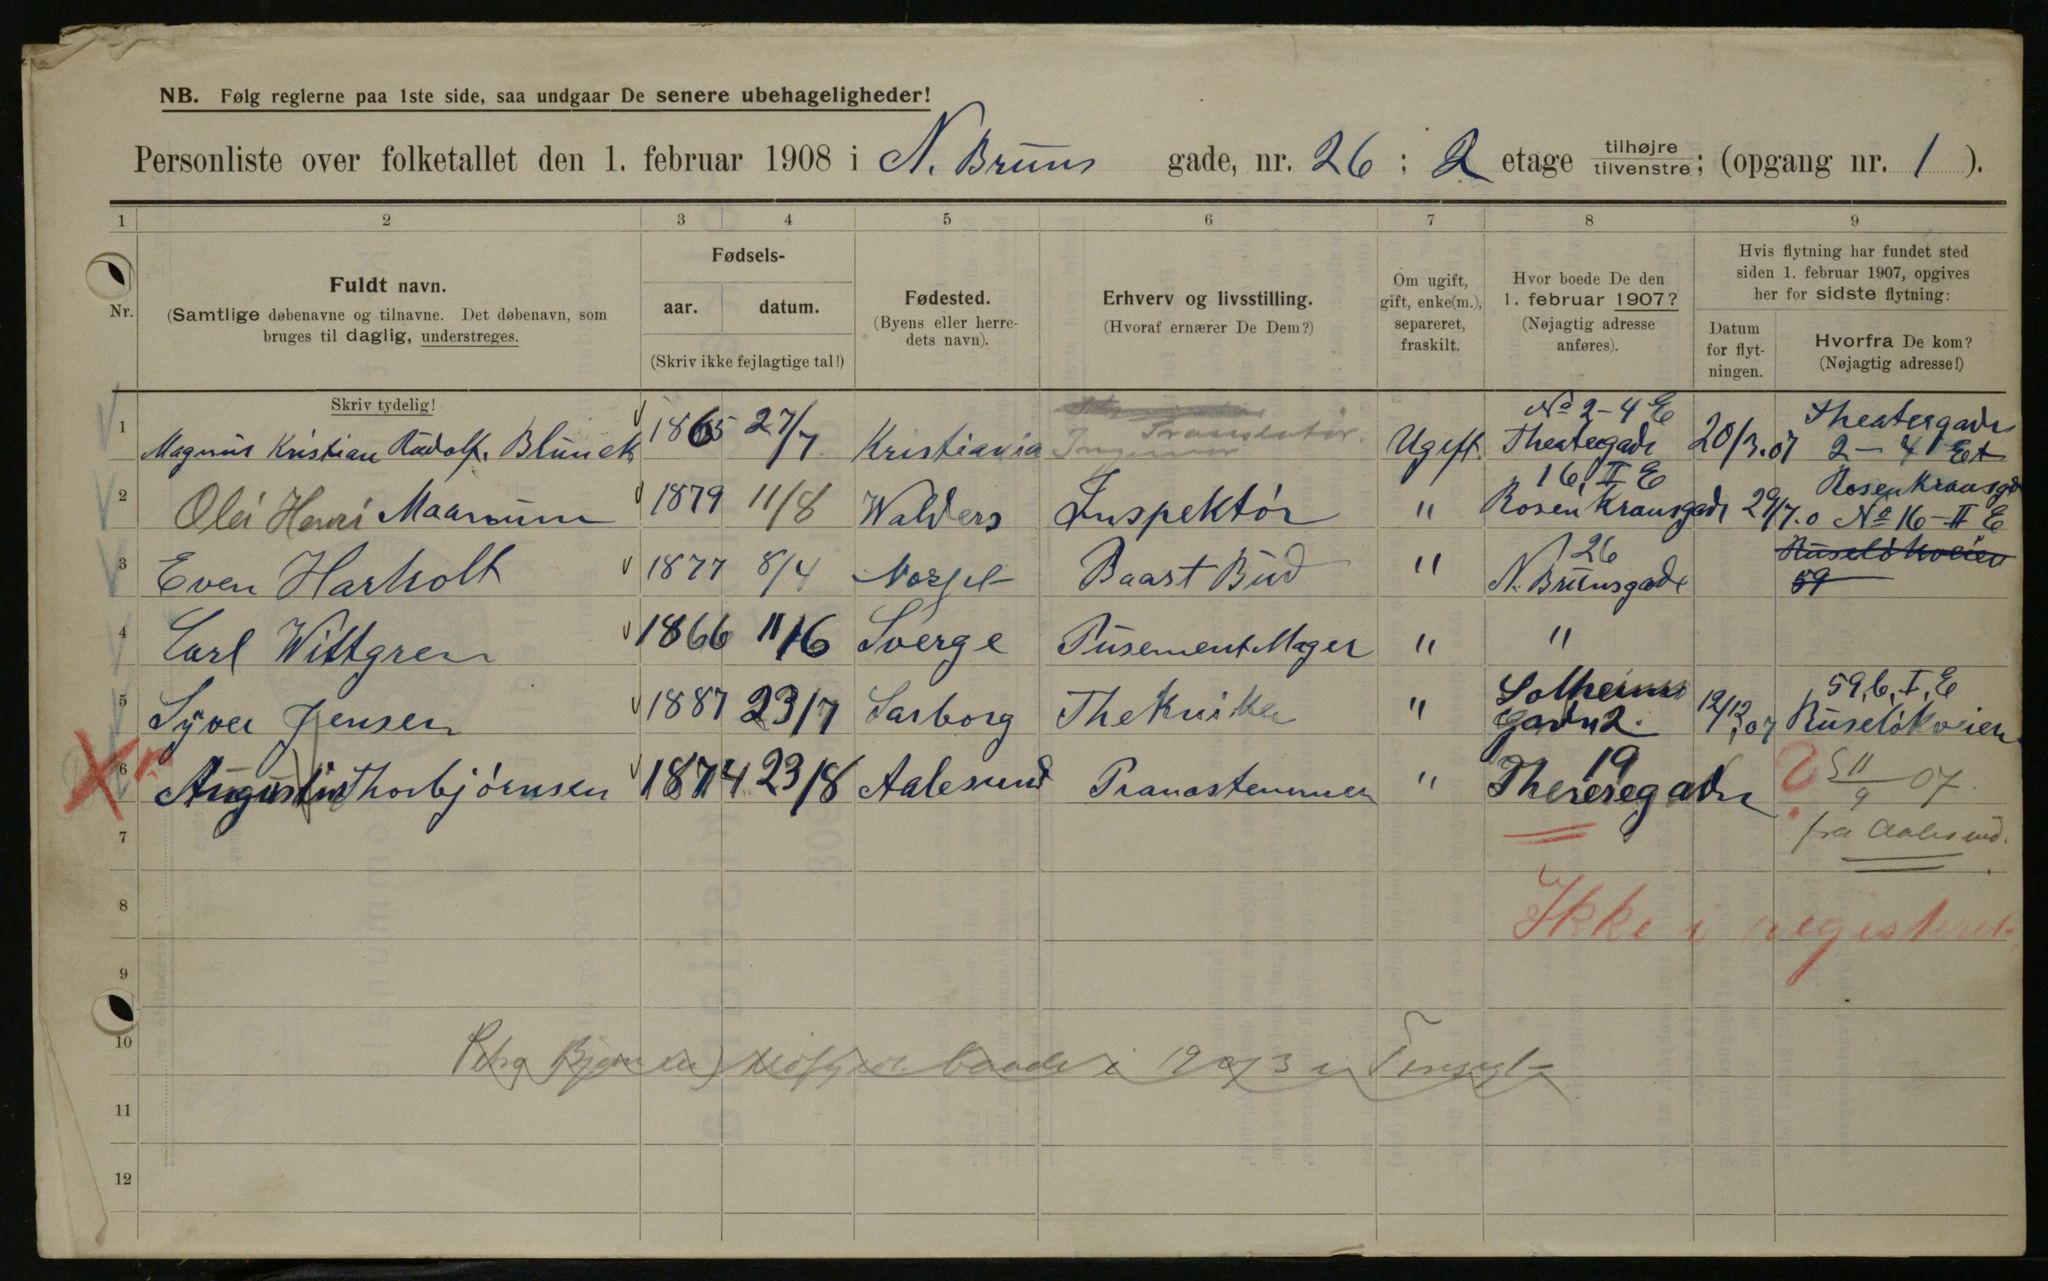 NB. Følg reglerne paa 1ste side, saa undgaar De senere ubehageligheder!
Personliste over folketallet den 1. februar 1908 i N. Bruns gade, nr. 26 ; 2 etage tilhøjre tilvenstre; (opgang nr. 1 ).
1 2 3 4 5 6 7 8 9
Nr.
Fuldt navn.
(Samtlige døbenavne og tilnavne. Det døbenavn, som
bruges til daglig, understreges.
Skriv tydelig!
Fødsels-
aar. datum.
(Skriv ikke fejlagtige tal!)
Fødested.
(Byens eller herre-
dets navn).
Erhverv og livsstilling.
(Hvoraf ernærer De Dem?)
Om ugift,
gift, enke(m.),
separeret,
fraskilt.
Hvor boede De den
1. februar 1907?
(Nøjagtig adresse
anføres).
Hvis flytning har fundet sted
siden 1. februar 1907, opgives
her for sidste flytning:
Datum
for flyt-
ningen.
Hvorfra De kom?
(Nøjagtig adresse!)
1 Magnus Kristian Rudolf. Blunck 1865 27/7 Kristiania Ingeniør Translatør. Ugift. No 2-4 E Theatergade 20/3.07 Theatergade 2-4 Et
2 Olei Henri Maanum 1879 11/8 Walders Inspektør " 16 II E Rosenkransgade 29/7.0 Rosenkransgd No 16-II E
3 Even Harholt 1877 8/4 Baart Bud " 26 N. Brunsgade Ruseløkveien 59
4 Carl Wittgren 1866 11/6 Sverge Pusement Mager " "
5 Syver Jensen 1887 23/7 Sarborg Thekniker " Solheims Gaden 2. 12/12.07 59, b, I, E Ruseløkveien
6 Augustin Thorbjørnsen 1874 23/8 Aalesund Pianostemmer " 19 Theresegade 11/9 07.
fra Aalesund.
7
8 Ikke i registeret.
9
10 i 1903
11
12